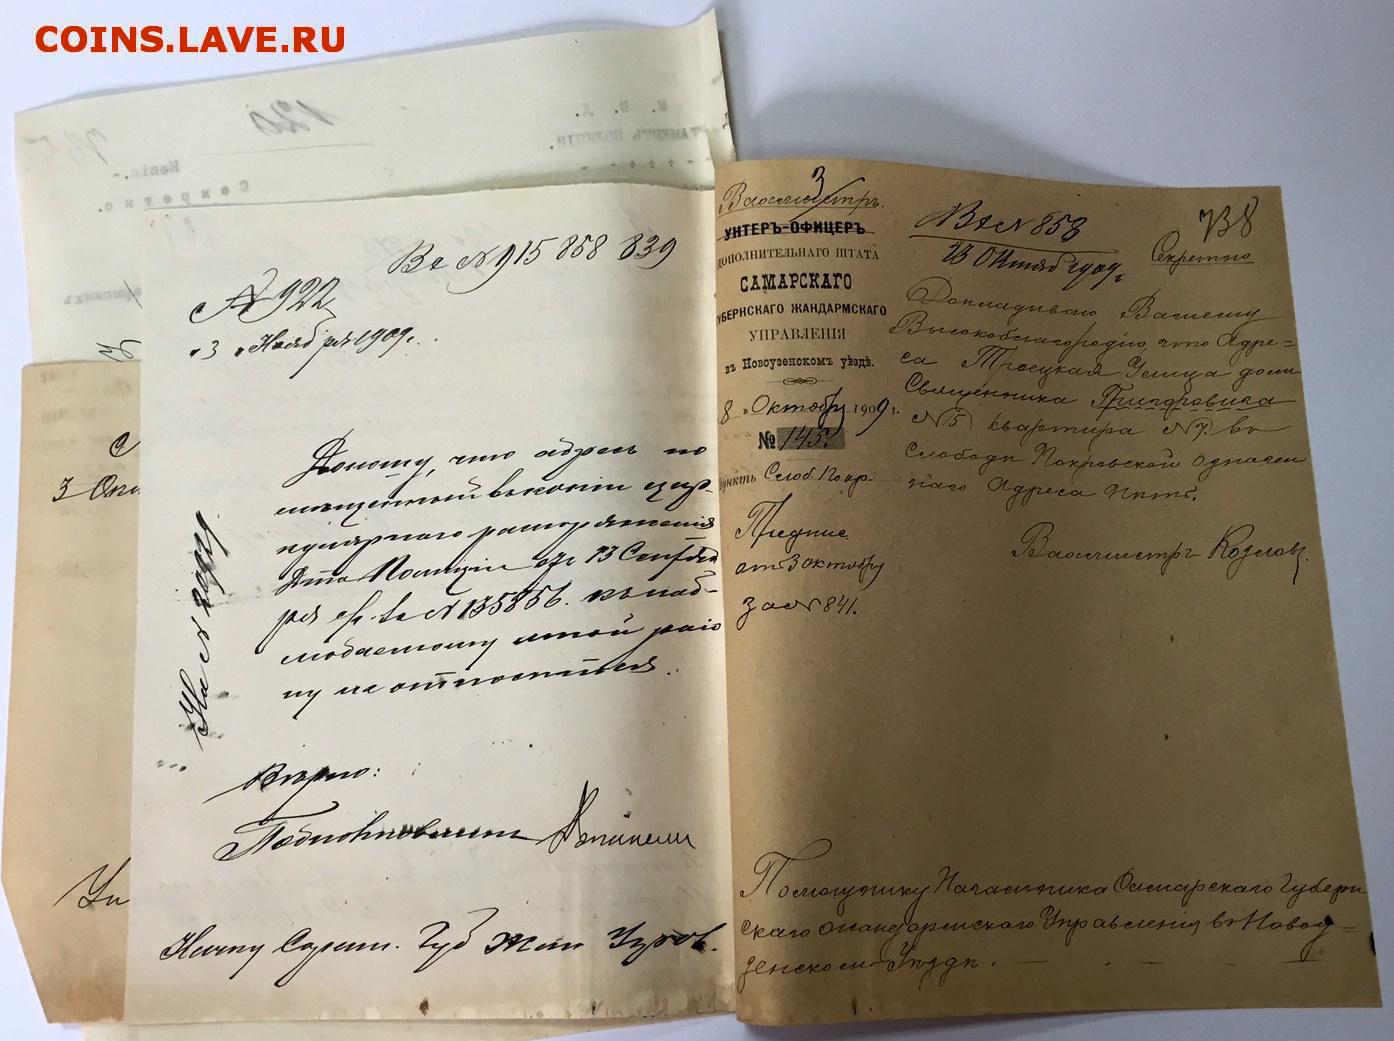 COINS.LAVE.RU
М. В. Д.
ТАМЕНТЪ ПОЛИЦІИ.
Копія.
Секретно.
120
Вх N 915 858 839
N 922
"3" Ноября 1909 г.
Доношу, что адресъ по
мѣщенный въ копіи цир-
кулярнаго распоряженія
Д-та Полиціи отъ 13 Сентяб
ря с/г. за N 135856. къ наб-
людаемому мной раіо
ну не относится.
На N
Вѣрно:
Подполковникъ
Нач-ку Сарат. Губ Жан Управ.
3
Вахмистръ.
УНТЕРЪ-ОФИЦЕРЪ
ДОПОЛНИТЕЛЬНАГО ШТАТА
САМАРСКАГО
ГУБЕРНСКАГО ЖАНДАРМСКАГО
УПРАВЛЕНІЯ
въ Новоузенскомъ уѣздѣ.
8 " Октября 1909 г.
№ 145.
Пунктъ Слоб. Покр.
Предпис.
от 3 октября
за N 841.
Вх N 858
13 Октября 1909 г
738
Секретно
Докладываю Вашему
Высокоблагородію, что Адре=
са Троецкая Улица домъ
Священника Григоровича
N 5 квартира N 7. въ
Слободѣ Покровской означен
наго Адреса Нѣтъ.
Вахмистръ Козловъ
Помощнику Начальника Самарскаго Губерн
скаго Жандармскаго Управленія въ Новоу=
зенскомъ Уѣздѣ.